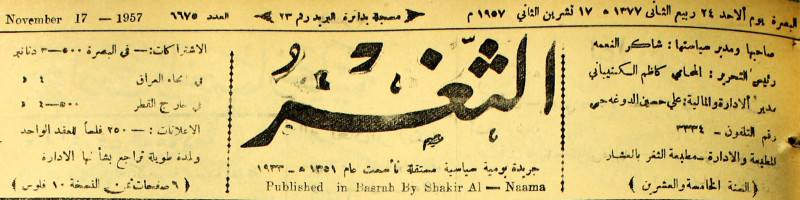 البصرة يوم الاحد ٢٤ ربيع الثاني ١٣٧٧ ه ١٧ تشرين الثاني ١٩٥٧ م
مسجلة بدائرة البريد رقم ٢٣
العدد ٦٦٧٥
November 17 — 1957
صاحبها ومدير سياستها : شاكر النعمه
رئيس التحرير : المحامي كاظم الكشيباني
مدير الادارة والمالية : علي حسين الدوغه جي
رقم التلفون — ٣٣٣٤
المطبعة والادارة — مطبعة الثغر بالعشار
( السنة الخامسة والعشرين )
الثغر
جريدة يومية سياسية مستقلة تأسست عام ١٣٥١ ه — ١٩٣٣
Published in Basrah By Shakir Al — Naama
الاشتراكات : — في البصرة ٥٠٠ – ٣ دنانير
في انحاء العراق ٤ »
في خارج القطر ٥٠٠ – ٤ »
الاعلانات : — ٢٥٠ فلساً للعقد الواحد
ولمدة طويلة تراجع بشأنها الادارة
( ٦ صفحات ثمن النسخة ١٠ فلوس )